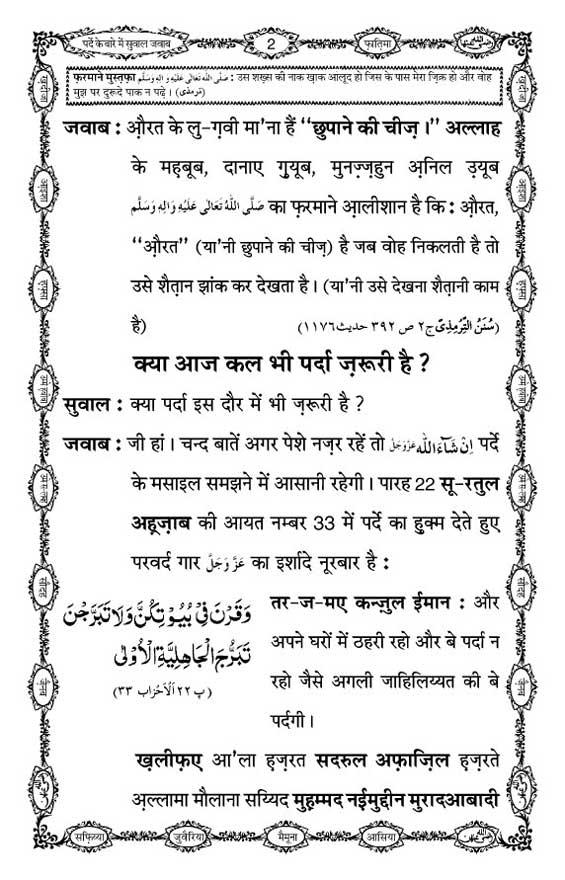 पर्दे के बारे में सुवाल जवाब
2
फ़ातिमा
फ़रमाने मुस्तफ़ा صَلَّى اللهُ تَعَالٰى عَلَيْهِ وَاٰلِهٖ وَسَلَّم : उस शख़्स की नाक ख़ाक आलूद हो जिस के पास मेरा ज़िक्र हो और वोह
मुझ पर दुरूदे पाक न पढ़े । (ترمذی)
जवाब : औ़रत के लु-ग़वी मा'ना हैं ‘‘छुपाने की चीज़ ।’’ अल्लाह
के मह़बूब, दानाए ग़ुयूब, मुनज़्ज़हुन अ़निल उ़यूब
صَلَّى اللهُ تَعَالٰى عَلَيْهِ وَاٰلِهٖ وَسَلَّم का फ़रमाने आ़लीशान है कि : औ़रत,
‘‘औ़रत’’ (या'नी छुपाने की चीज़) है जब वोह निकलती है तो
उसे शैत़ान झांक कर देखता है । (या'नी उसे देखना शैत़ानी काम
है) (سُنَنُ التِّرْمِذِىّ ج٢ ص ٣٩٢ حديث ١١٧٦)
क्या आज कल भी पर्दा ज़रूरी है ?
सुवाल : क्या पर्दा इस दौर में भी ज़रूरी है ?
जवाब : जी हां । चन्द बातें अगर पेशे नज़र रहें तो اِنْ شَآءَ اللّٰه عَزَّوَجَلَّ पर्दे
के मसाइल समझने में आसानी रहेगी । पारह 22 सू-रतुल
अह़्ज़ाब की आयत नम्बर 33 में पर्दे का ह़ुक्म देते हुए
परवर्द गार عَزَّ وَجَلَّ का इर्शादे नूरबार है :
وَقَرْنَ فِىْ بُيُوْتِكُنَّ وَلَا تَبَرَّجْنَ
تَبَرُّجَ الْجَاهِلِيَّةِ الْاُوْلٰى
(پ ٢٢ اَلْاَحْزَاب ٣٣)
तर-ज-मए कन्ज़ुल ईमान : और
अपने घरों में ठहरी रहो और बे पर्दा न
रहो जैसे अगली जाहिलिय्यत की बे
पर्दगी ।
ख़लीफ़ए आ'ला ह़ज़रत सदरुल अफ़ाज़िल ह़ज़रते
अ़ल्लामा मौलाना सय्यिद मुह़म्मद नई़मुद्दीन मुरादआबादी
सफ़िय्या
जुवैरिया
मैमूना
आसिया